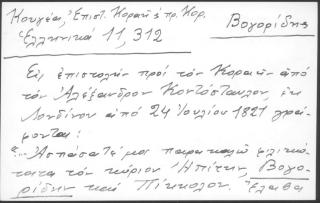 Κουγέα, Ἐπιστ. Κοραῆ ἐ πρ. Κορ. Βογορίδης
Ἑλληνικά 11, 312
Εἰς ἐπιστολήν πρός τόν Κοραῆν ἀπό
τόν Ἀλέξανδρον Κοντόσταυλον, ἐκ
Λονδίνου ἀπό 24 Ἰουλίου 1821 γρά-
φονται:
"... Ἀσπάσατέ μοι παρακαλῶ φιλικώ-
τατα τόν κύριον Ἠπίτην, Βογο-
ρίδην καί Πίκκολον. Ἔλαβα